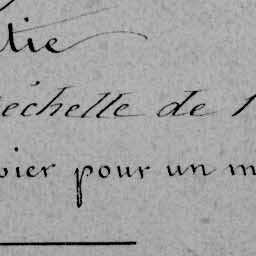 tie
échelle de 1
vier pour un m